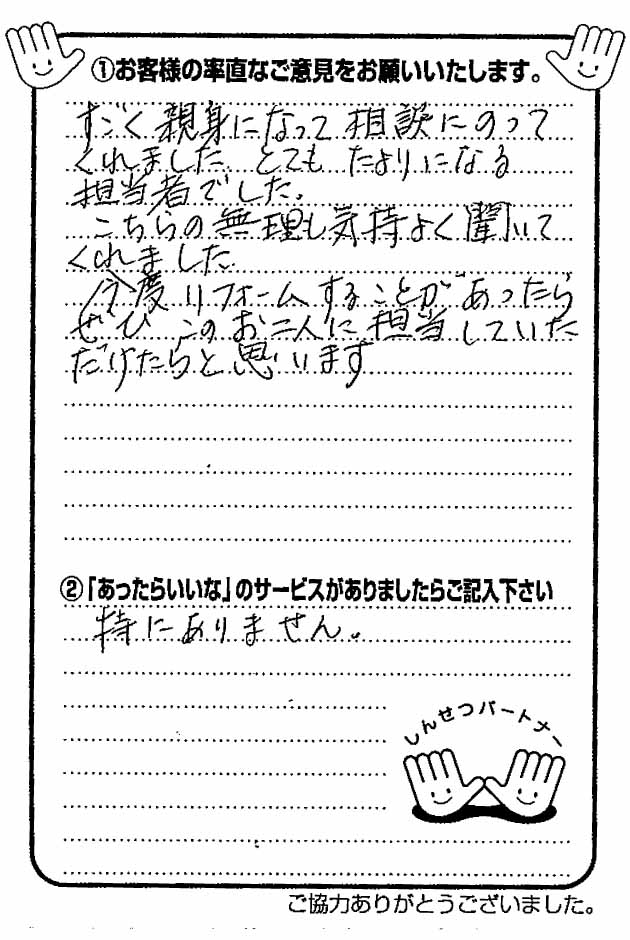 ①お客様の率直なご意見をお願いいたします。
すごく親身になって相談にのって
くれました。とても たよりになる
担当者でした。
こちらの無理も気持よく聞いて
くれました
今度リフォームすることがあったら
ぜひこのお二人に担当していた
だけたらと思います
②「あったらいいな」のサービスがありましたらご記入下さい
特にありません。
しんせつパートナー
ご協力ありがとうございました。